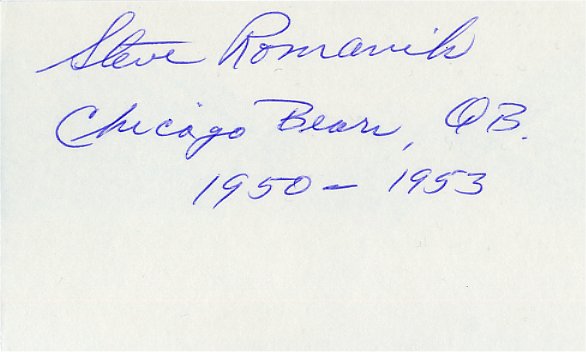 Steve Romanik
Chicago Bears, QB.
1950 - 1953